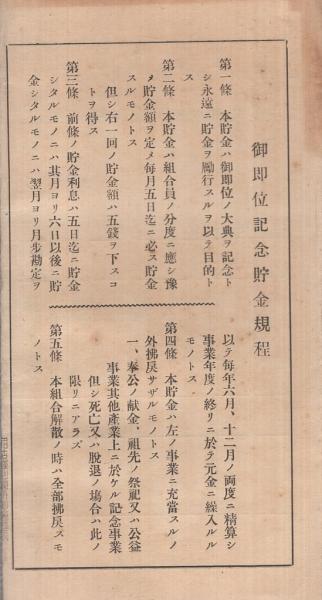 御即位記念貯金規程
第一條 本貯金ハ御即位ノ大典ヲ記念ト
シ永遠ニ貯金ヲ勵行スルヲ以テ目的ト
ス
第二條 本貯金ハ組合員ノ分度ニ應シ豫
メ貯金額ヲ定メ毎月五日迄ニ必ス貯金
スルモノトス
但シ右一回ノ貯金額ハ五錢ヲ下スコ
トヲ得ス
第三條 前條ノ貯金利息ハ五日迄ニ貯金
シタルモノニハ其月ヨリ六日以後ニ貯
金シタルモノニハ翌月ヨリ月步勘定ヲ
以テ毎年六月、十二月ノ兩度ニ精算シ
事業年度ノ終リニ於テ元金ニ繰入ルル
モノトス
第四條 本貯金ハ左ノ事業ニ充當スルノ
外拂戾サザルモノトス
一、奉公ノ献金、祖先ノ祭祀又ハ公益
事業其他產業上ニ於ケル記念事業
但シ死亡又ハ脫退ノ場合ハ此ノ
限リニアラズ
第五條 本組合解散ノ時ハ全部拂戾スモ
ノトス